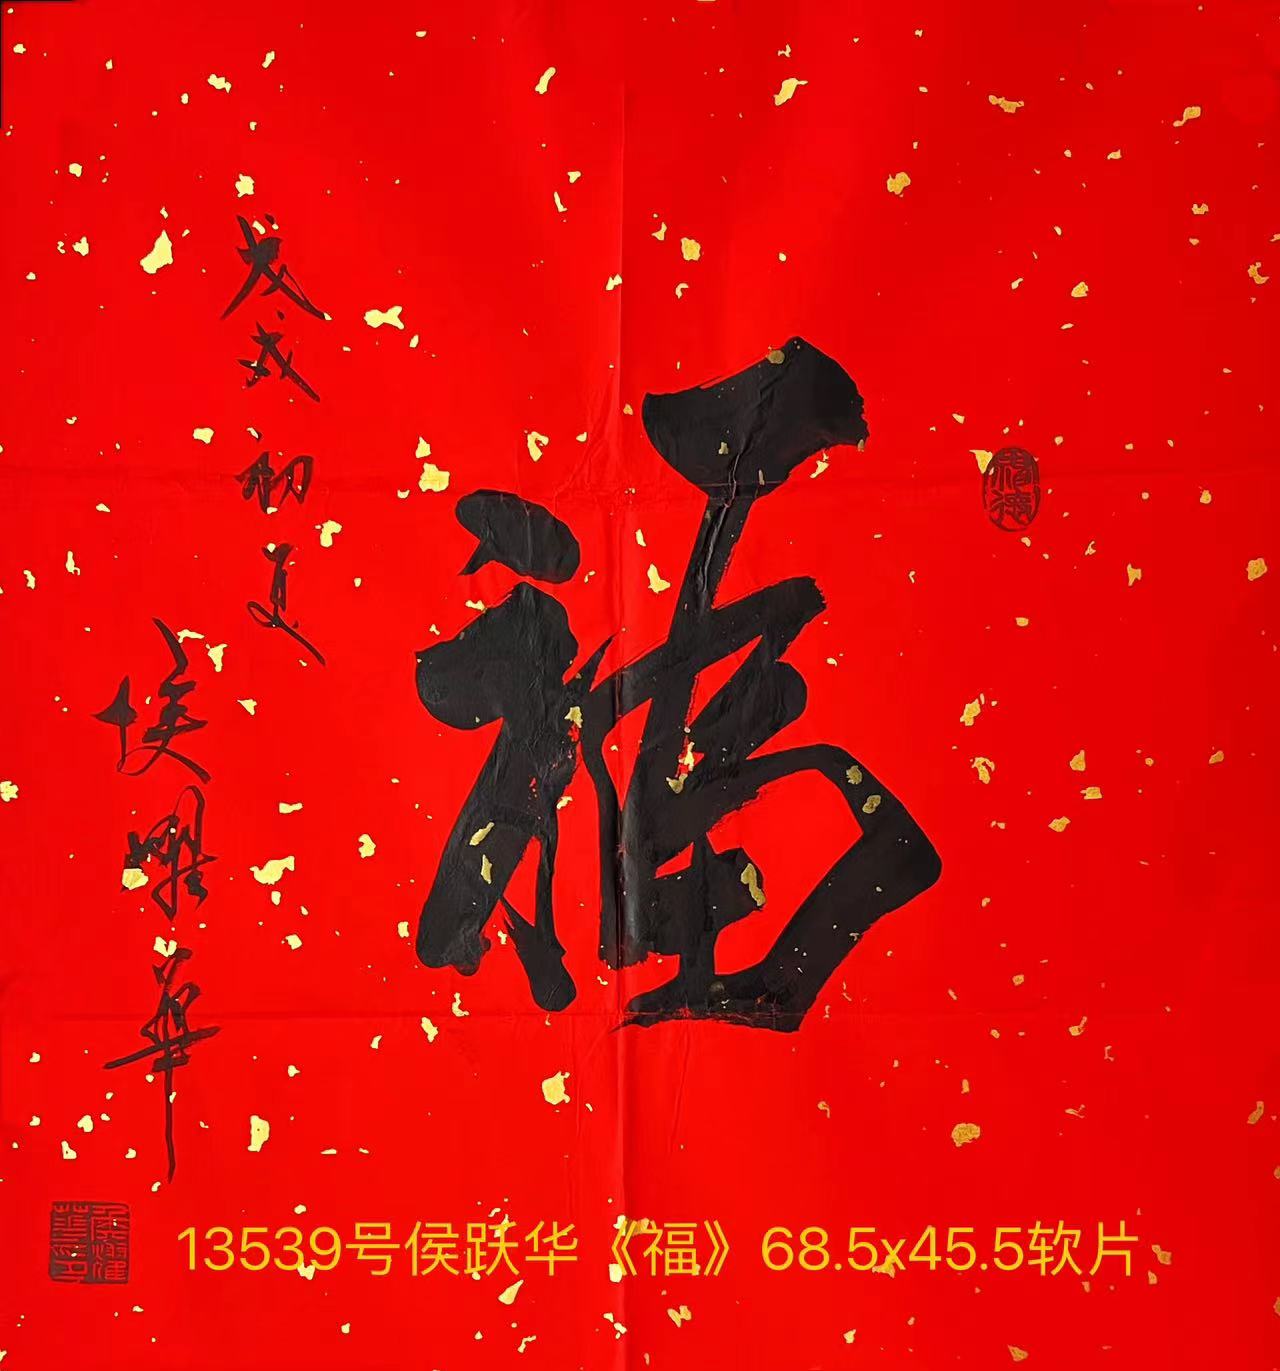 福
戊戌初夏
侯耀華
13539号侯跃华《福》68.5x45.5软片